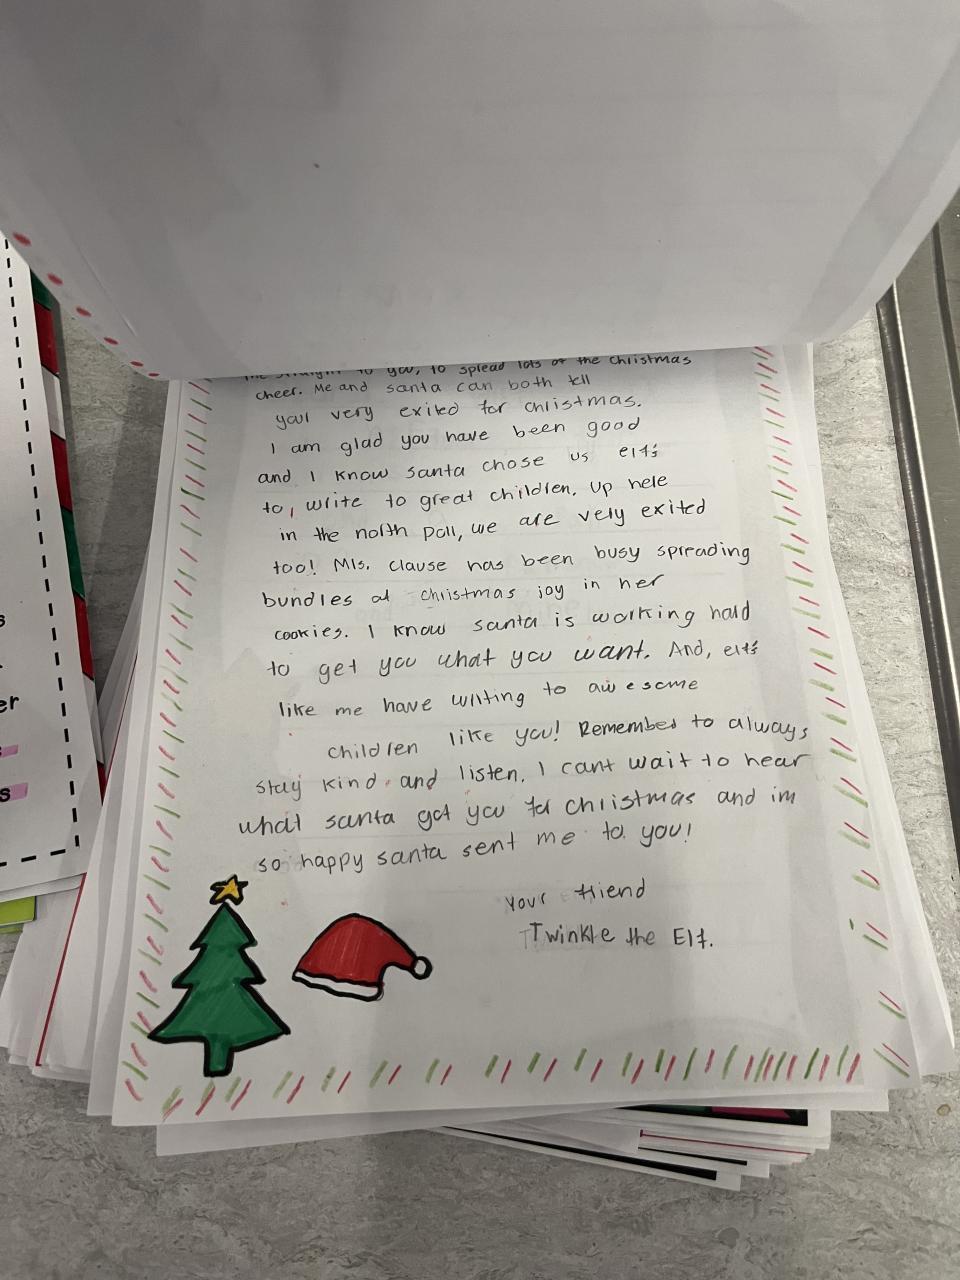 straight to you, to spread lots of the christmas
cheer. Me and santa can both tell
your very exited for christmas.
I am glad you have been good
and I know santa chose us elf's
to, write to great children. Up here
in the north poll, we are very exited
too! Mrs. clause has been busy spreading
bundles of christmas joy in her
cookies. I know santa is working hard
to get you what you want. And, elf's
like me have writing to awesome
children like you! Remember to always
stay kind and listen. I cant wait to hear
what santa got you for christmas and im
so happy santa sent me to you!
Your friend
Twinkle the Elf.
er
s